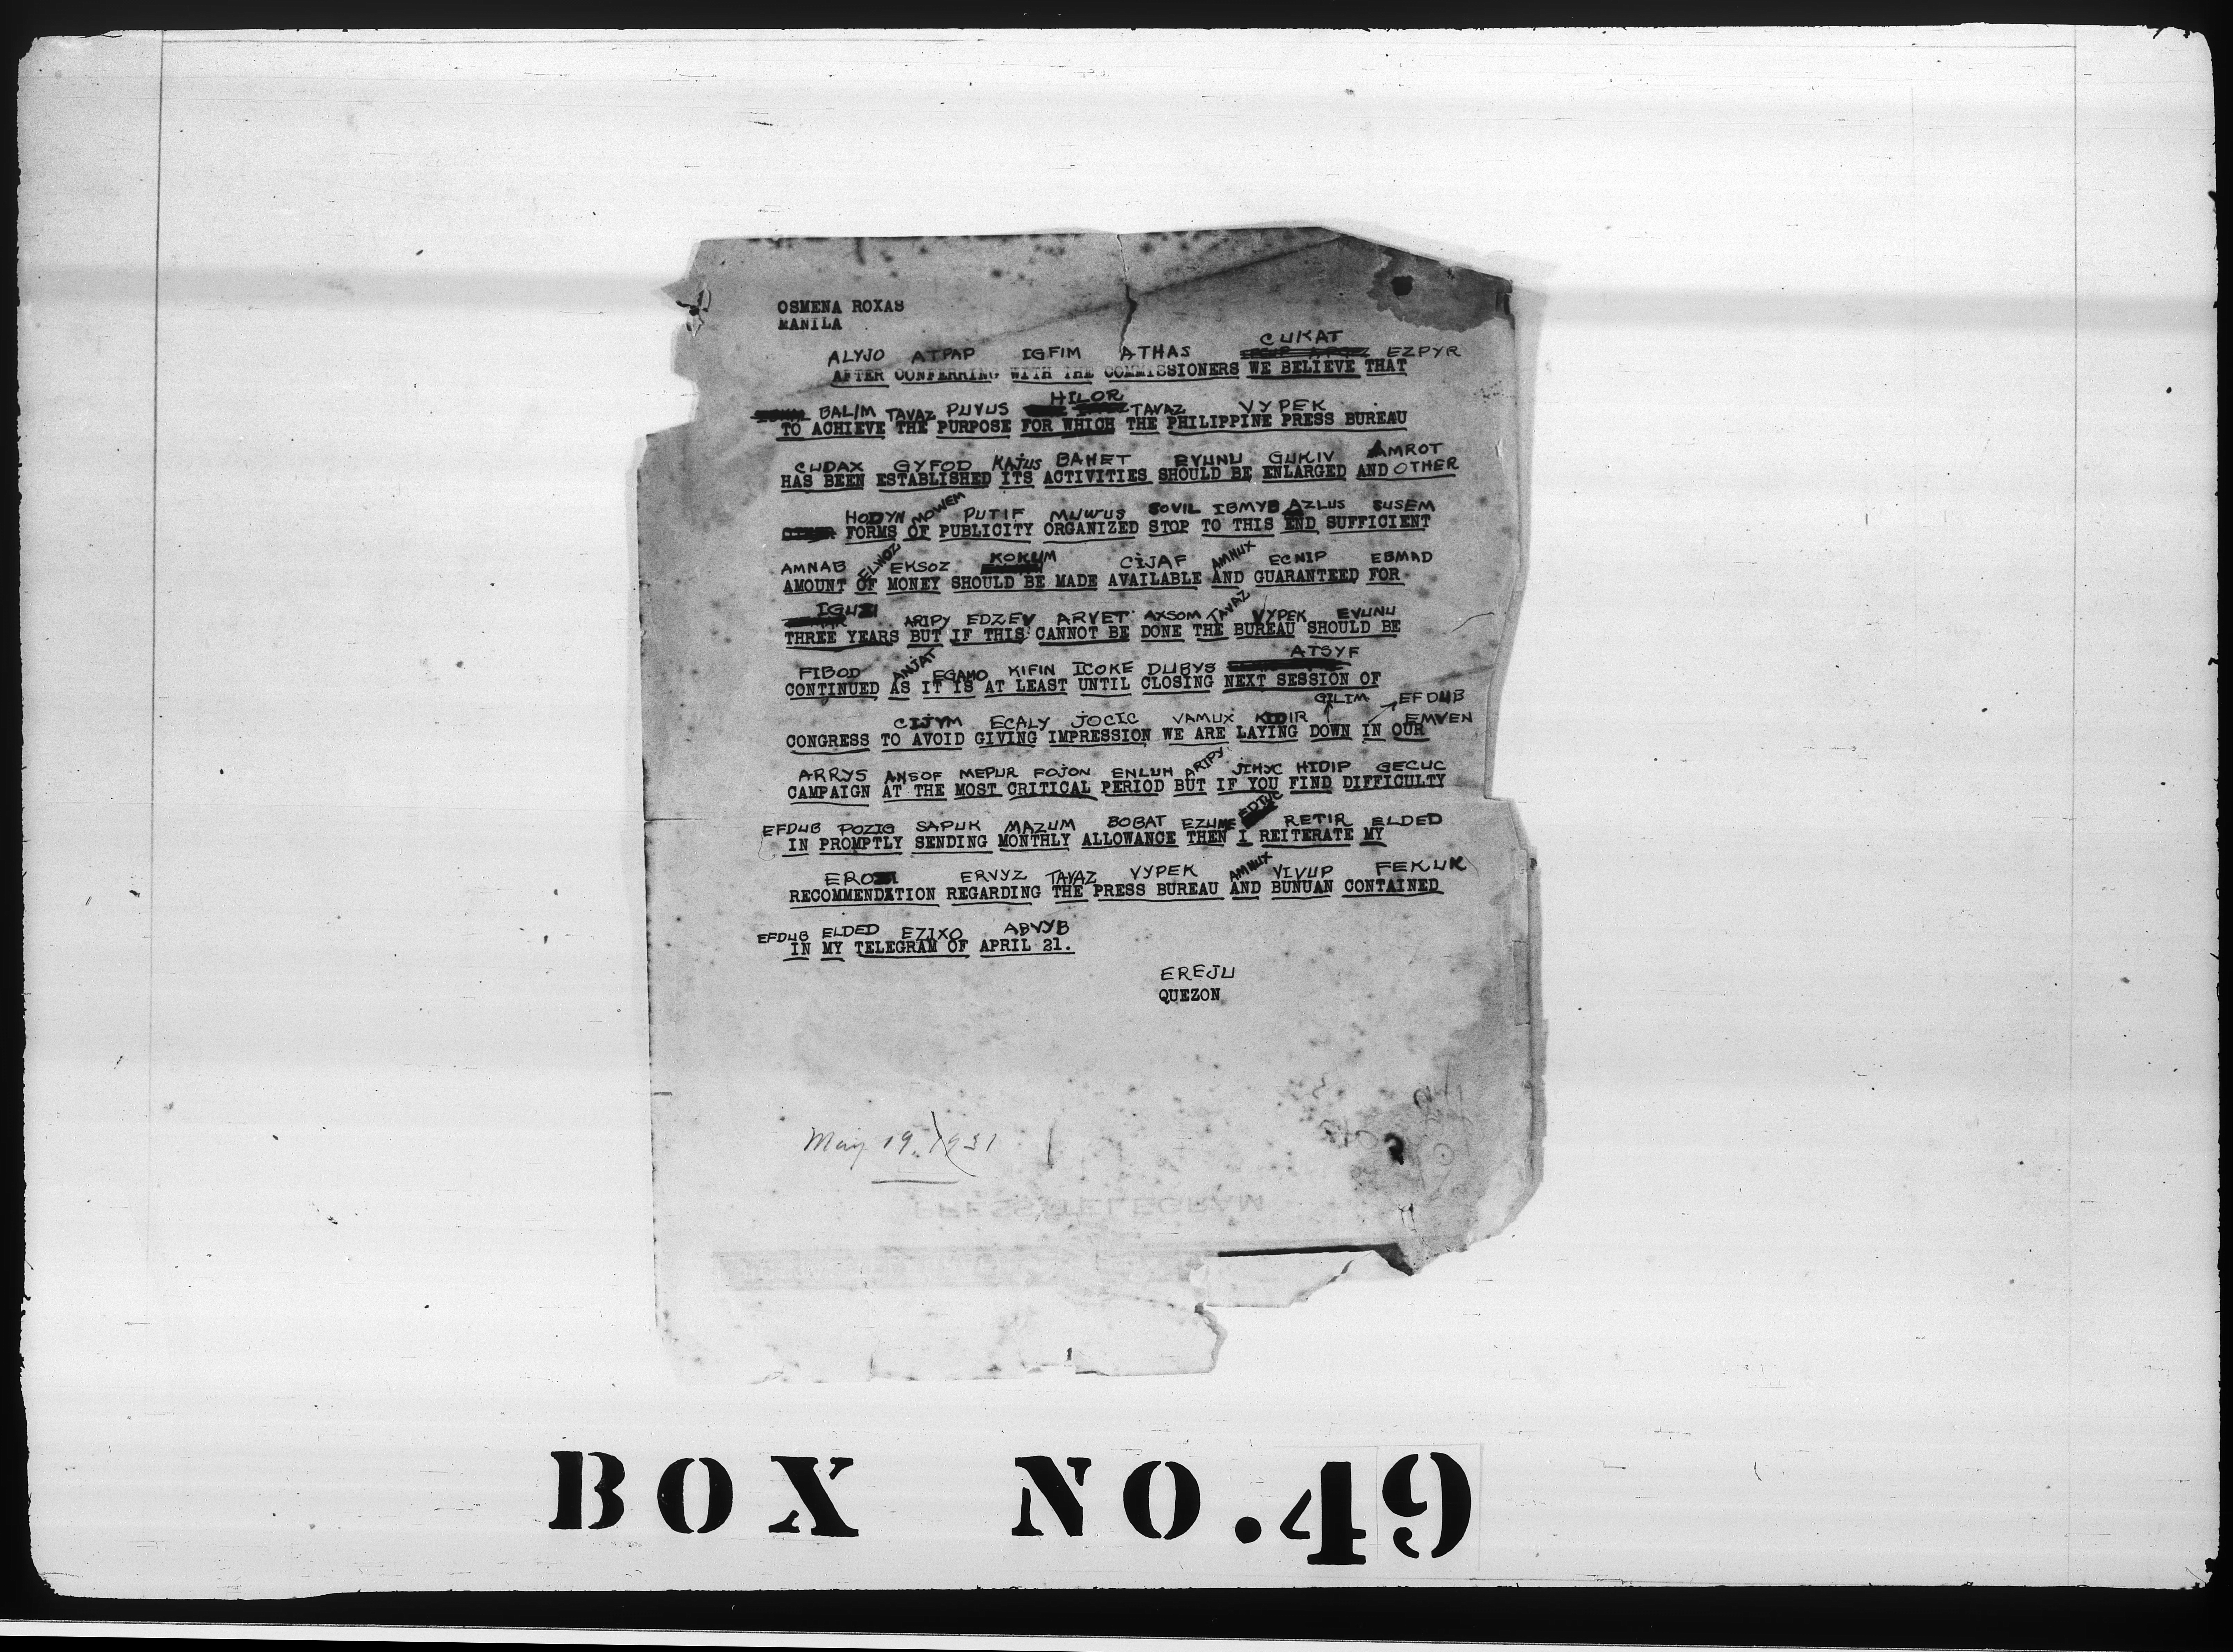 OSMENA ROXAS
MANILA
CUKAT
ALYJO ATPAP IGFIM ATHAS EZPYR
AFTER CONFERRING WITH THE COMMISSIONERS WE BELIEVE THAT
HILOR
BALIM TAVAZ PUVUS TAVAZ VYPEK
TO ACHIEVE THE PURPOSE FOR WHICH THE PHILIPPINE PRESS BUREAU
CUDAX GYFOD KAJUS BAHET EVUNU GUKIV AMROT
HAS BEEN ESTABLISHED ITS ACTIVITIES SHOULD BE ENLARGED AND OTHER
HODYN MOWEM PUTIF MUWUS SOVIL IBMYB AZLUS SUSEM
FORMS OF PUBLICITY ORGANIZED STOP TO THIS END SUFFICIENT
AMNAB ELWOZ EKSOZ KOKUM CIJAF AMNUX ECNIP EBMAD
AMOUNT OF MONEY SHOULD BE MADE AVAILABLE AND GUARANTEED FOR
ARIPY EDZEV ARVET AXSOM TAVAZ VYPEK EVUNU
THREE YEARS BUT IF THIS CANNOT BE DONE THE BUREAU SHOULD BE
ATSYF
FIBOD ANJAT EGAMO KIFIN ICOKE DUBYS
CONTINUED AS IT IS AT LEAST UNTIL CLOSING NEXT SESSION OF
GILIM EFDUB
CIJYM ECALY JOCIC VAMUX KIDIR EMVEN
CONGRESS TO AVOID GIVING IMPRESSION WE ARE LAYING DOWN IN OUR
ARRYS ANSOF MEPUR FOJON ENLUH ARIPY JIHYC HIDIP GECUC
CAMPAIGN AT THE MOST CRITICAL PERIOD BUT IF YOU FIND DIFFICULTY
EFDUB POZIG SAPUK MAZUM BOBAT EZUME RETIR ELDED
IN PROMPTLY SENDING MONTHLY ALLOWANCE THEN I REITERATE MY
ERVYZ TAVAZ VYPEK AMNUX VIVUP FEKUK
RECOMMENDATION REGARDING THE PRESS BUREAU AND BUNUAN CONTAINED
EFDUB ELDED EZIXO ABVYB
IN MY TELEGRAM OF APRIL 21.
EREJU
QUEZON
May 19, 1931
PRESS TELEGRAM
BOX NO.49